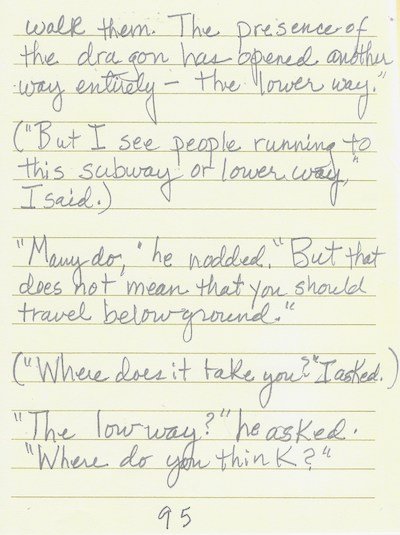 walk them. The presence of
the dragon has opened another
way entirely – the lower way."
("But I see people running to
this subway or lower way,"
I said.)
"Many do," he nodded. "But that
does not mean that you should
travel below ground."
("Where does it take you?" I asked.)
"The low way?" he asked.
"Where do you think?"
95